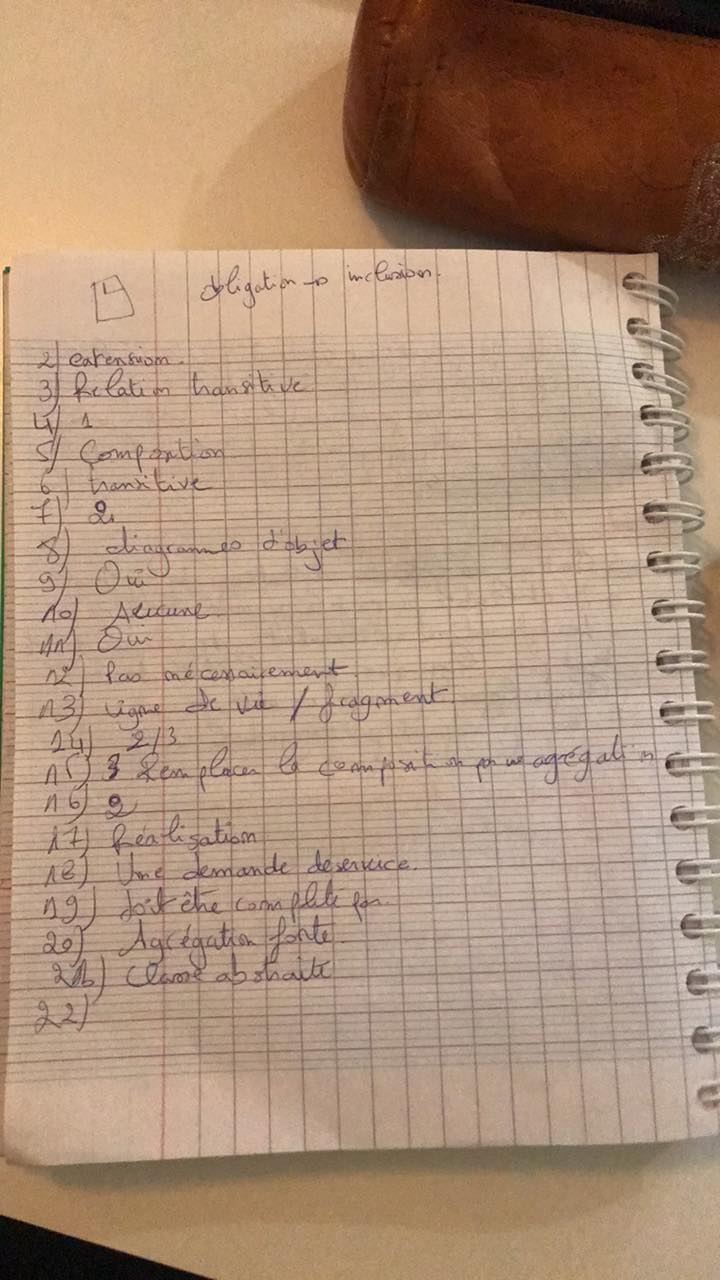 4 obligation → inclusion.
2) extension.
3) Relation transitive
4) 1
5) Composition
6) transitive
7) 2
8) diagrammes d'objet
9) Oui
10) Aucune
11) Oui
12) Pas nécessairement
13) Ligne de vie / fragment
14) 2/3
15) 3 Remplacer la composition par une agrégation
16) 2
17) Réalisation
18) Une demande de service.
19) doit être complète par
20) Agrégation forte
21b) Classe abstraite
22)